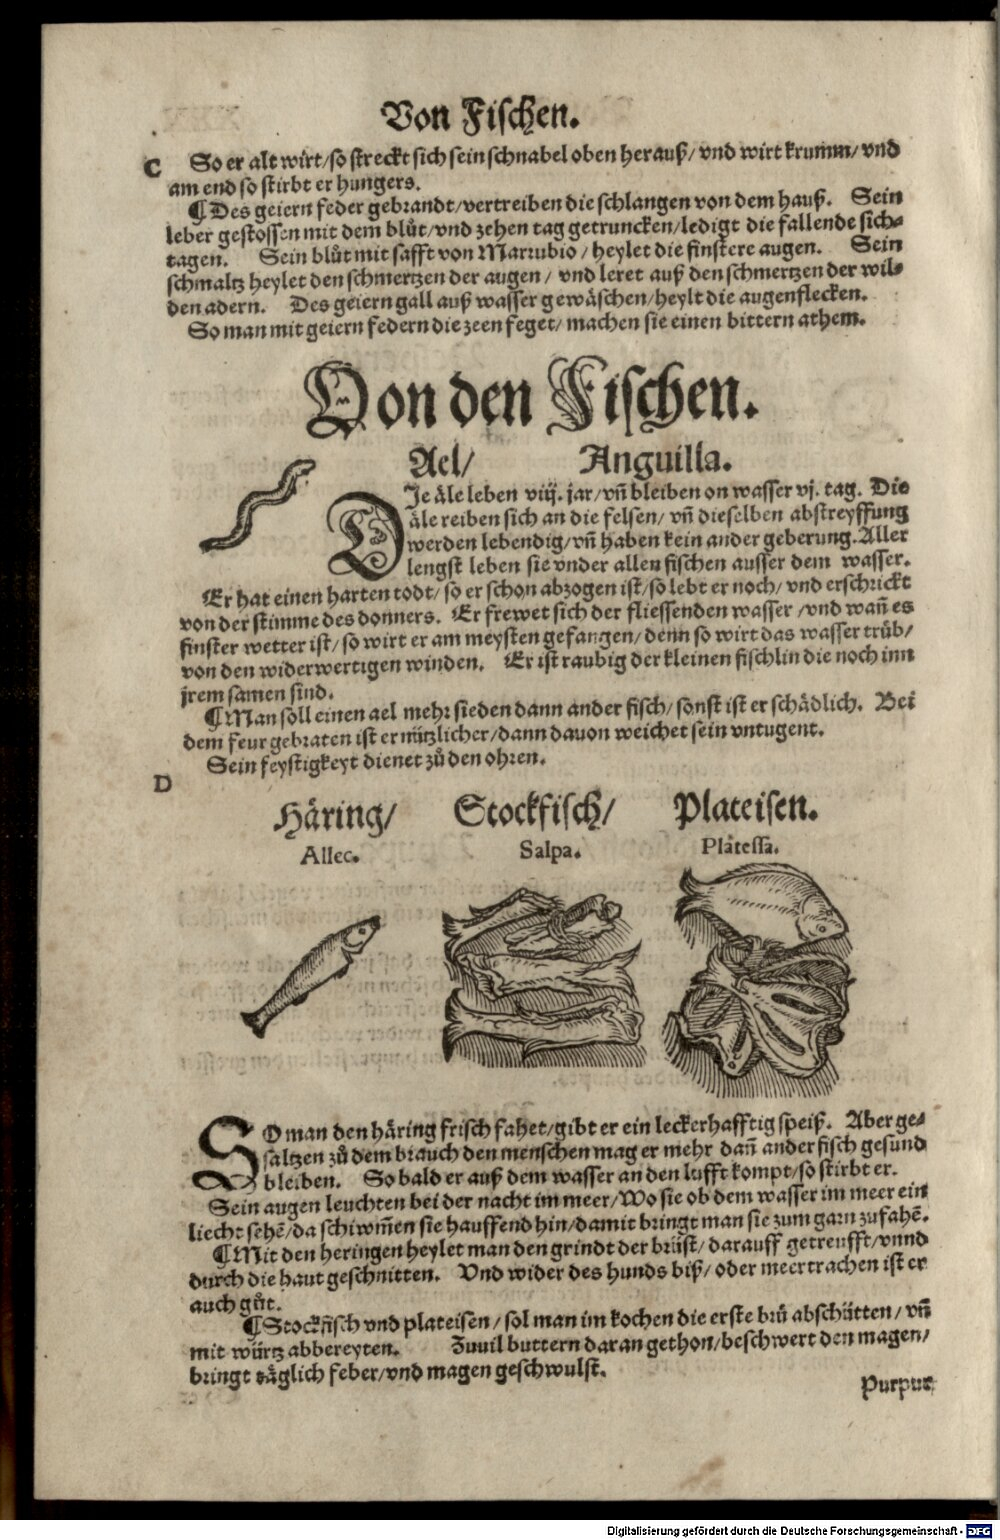 Von Fischen.
C So er alt würt/so streckt sich sein schnabel oben herauß/ vnd wirt krumm/ vnd
am end so stirbt er hungers.
¶Des geiern feder gebrandt/vertreiben die schlangen von dem hauß. Sein
leber gestossen mit dem blůt/vnd zehen tag getruncken/ledigt die fallende sich-
tagen. Sein blůt mit safft von Marrubio/ heylet die finstere augen. Sein
schmaltz heylet den schmertzen der augen/ vnd leret auß den schmertzen der wil-
den adern. Des geiern gall auß wasser gewäschen/heylt die augenflecken.
So man mit geiern federn die zeen feget/ machen sie einen bittern athem.
Von den Fischen.
Ael/ Anguilla.
Die äle leben viij. jar/vñ bleiben on wasser vj. tag. Die
äle reiben sich an die felsen/ vñ dieselben abstreyffung
werden lebendig/vñ haben kein ander geberung. Aller
lengst leben sie vnder allen fischen ausser dem wasser.
Er hat einen harten todt/ so er schon abzogen ist/so lebt er noch/ vnd erschrickt
von der stimme des donners. Er frewet sich der fliessenden wasser/vnd wañ es
finster wetter ist/so wirt er am meysten gefangen/denn so wirt das wasser trüb/
von den widerwertigen winden. Er ist raubig der kleinen fischlin die noch inn
jrem samen sind.
¶Man soll einen ael mehr sieden dann ander fisch/ sonst ist er schädlich. Bei
dem feur gebraten ist er nützlicher/dann dauon weichet sein vntugent.
Sein feystigkeyt dienet zů den ohren.
D
Häring/ Stockfisch/ Plateisen.
Allec. Salpa. Platessa.
SO man den häring frisch fahet/gibt er ein leckerhafftig speiß. Aber ge-
saltzen zů dem brauch den menschen mag er mehr dañ ander fisch gesund
bleiben. So bald er auß dem wasser an den lufft kompt/so stirbt er.
Sein augen leuchten bei der nacht im meer/Wo sie ob dem wasser im meer ein
liecht sehẽ/da schwim̃en sie hauffend hin/damit bringt man sie zum garn zufahẽ.
¶Mit den heringen heylet man den grindt der brüst/ darauff getreufft/vnnd
durch die haut geschnitten. Vnd wider des hunds biß/ oder meertrachen ist er
auch gůt.
¶Stockfisch vnd plateisen/ sol man im kochen die erste brü abschütten/ vñ
mit würtz abbereyten. Zuuil buttern daran gethon/beschwert den magen/
bringt täglich feber/vnd magen geschwulst.
Purpur
Digitalisierung gefördert durch die Deutsche Forschungsgemeinschaft - DFG